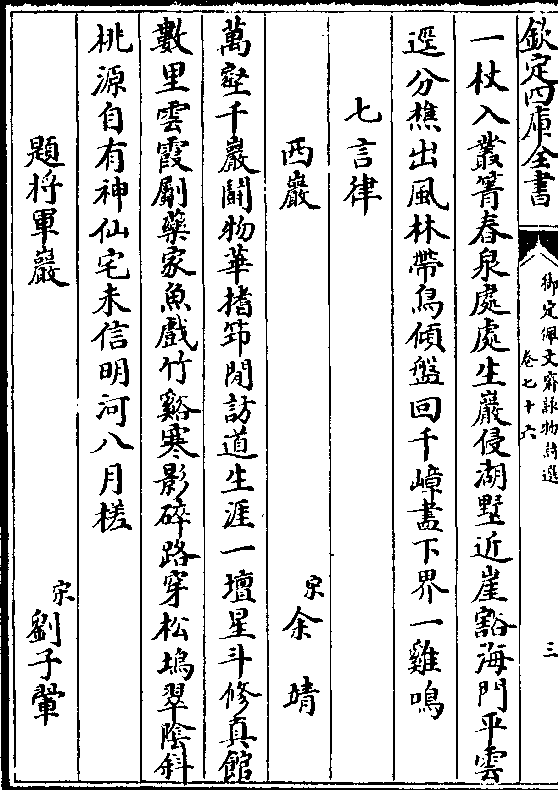 欽定四庫全書
御定佩文齋詠物詩選
卷七十六
三
一杖入叢箐春泉處處生巖侵湖墅近崖豁海門平雲
逕分樵出風林帶鳥傾盤回千嶂盡下界一雞鳴
七言律
西巖 宋余靖
萬壑千巖闢物華搘筇閒訪道生涯一壇星斗修真館
數里雲霞劚藥家魚戲竹谿寒影碎路穿松塢翠陰斜
桃源自有神仙宅未信明河八月槎
題將軍巖 宋劉子翬